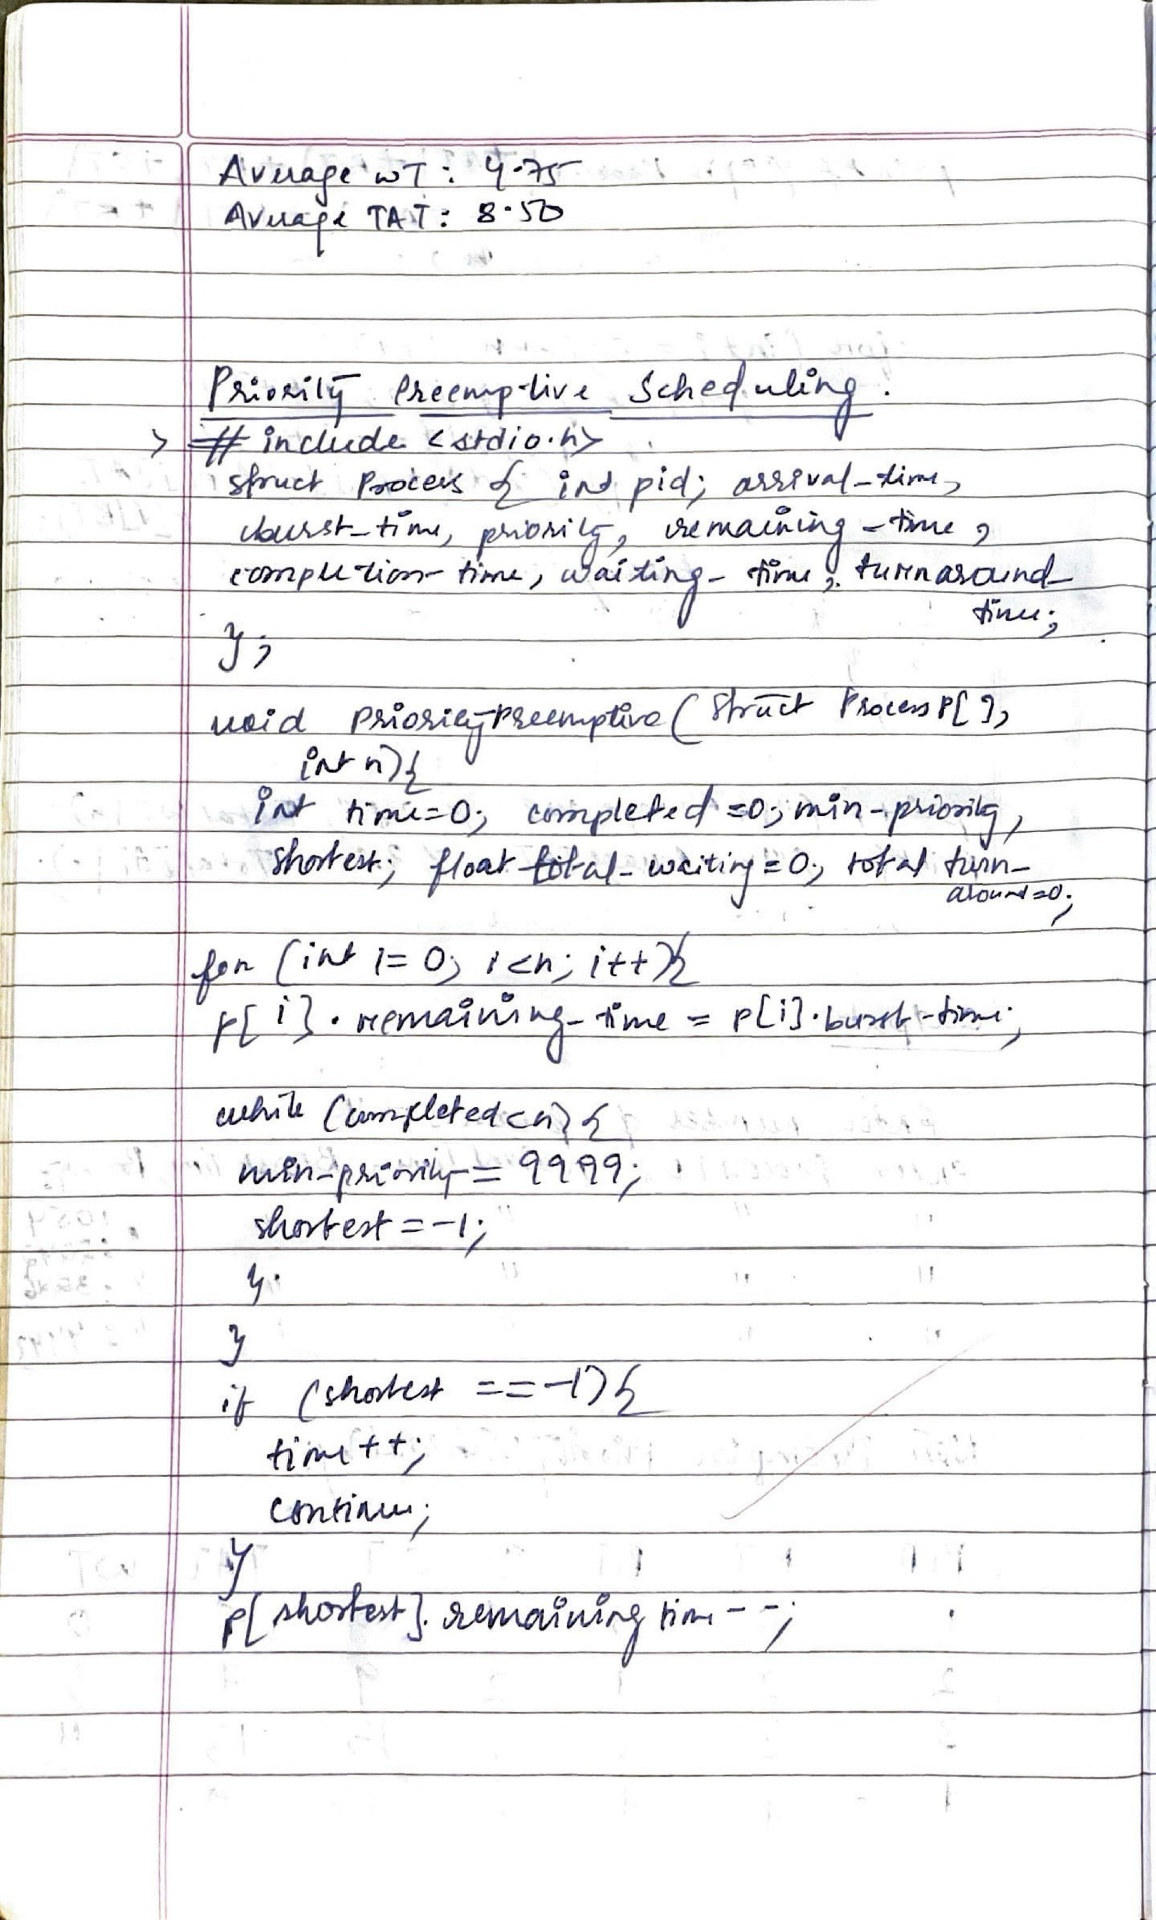 Average WT: 4.75
Average TAT: 8.50
Priority Preemptive Scheduling.
> # include <stdio.h>
struct Process { int pid; arrival-time,
burst-time, priority, remaining-time,
completion-time, waiting-time, turnaround-
time;
};
void PriorityPreemptive (Struct Process P[],
int n){
int time=0; completed=0; min-priority,
shortest; float total-waiting=0; total turn-
around=0;
for (int i=0; i<n; i++){
P[i].remaining-time = P[i].burst-time;
while (completed<n){
min-priority=9999;
shortest=-1;
}
}
if (shortest ==-1){
time++;
continue;
}
P[shortest].remaining time--;